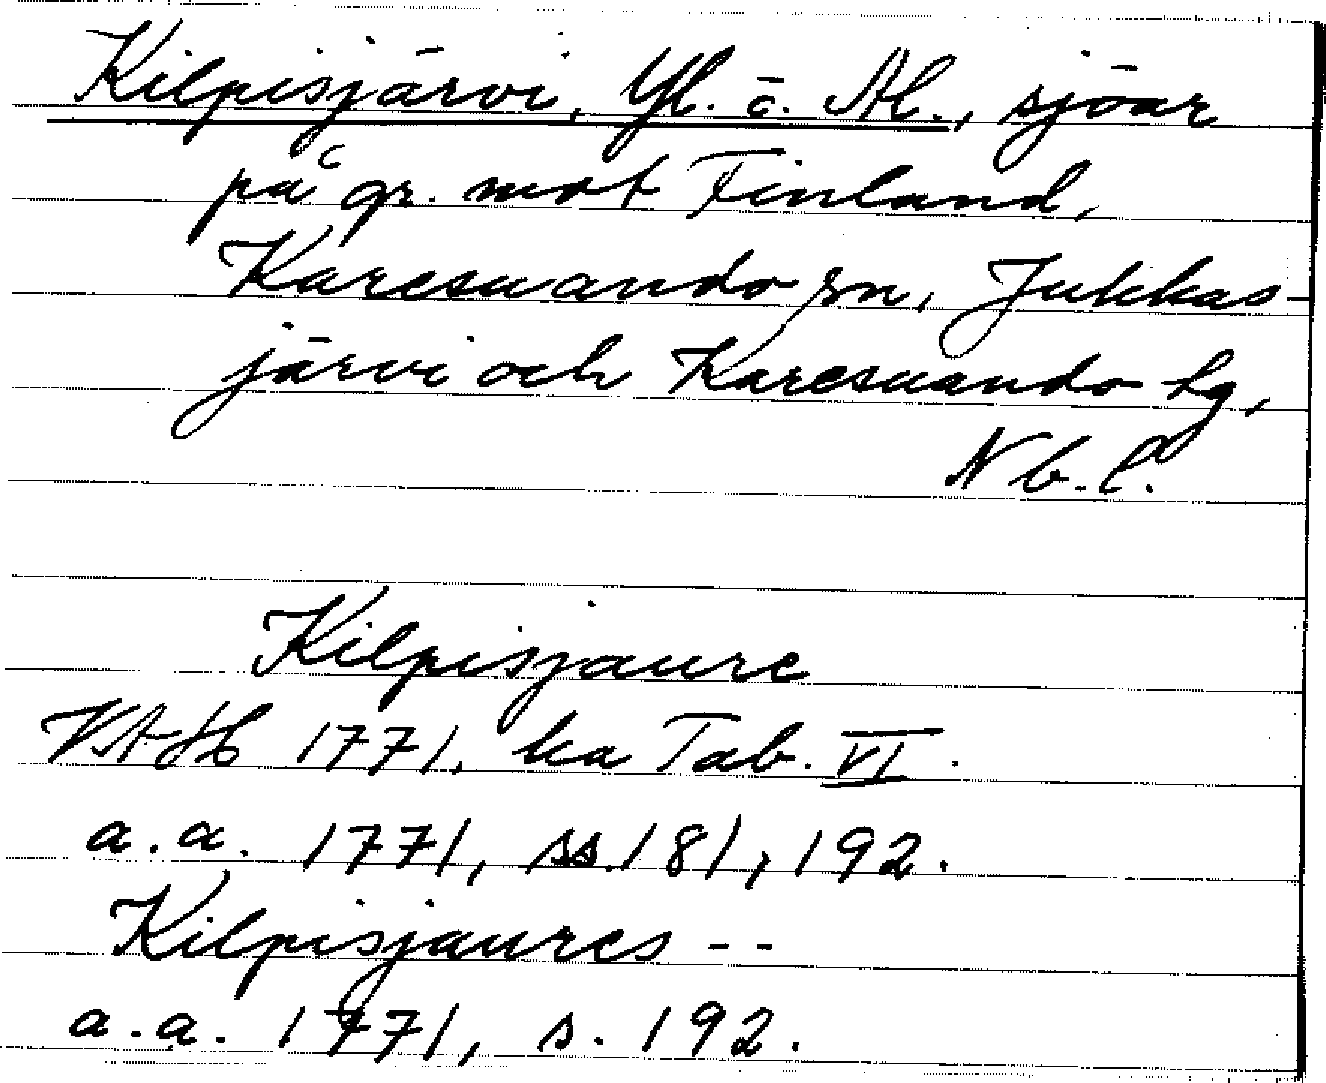 Kilpisjärvi, Yl. o. Al., sjöar
på gr. mot Finland,
Karesuando sn, Jukkas-
järvi och Karesuando hg,
Nb. l.
Kilpisjaure
VAH 1771, ka Tab. VI.
a.a. 1771, ss. 181, 192.
Kilpisjaures --
a.a. 1771, s. 192.